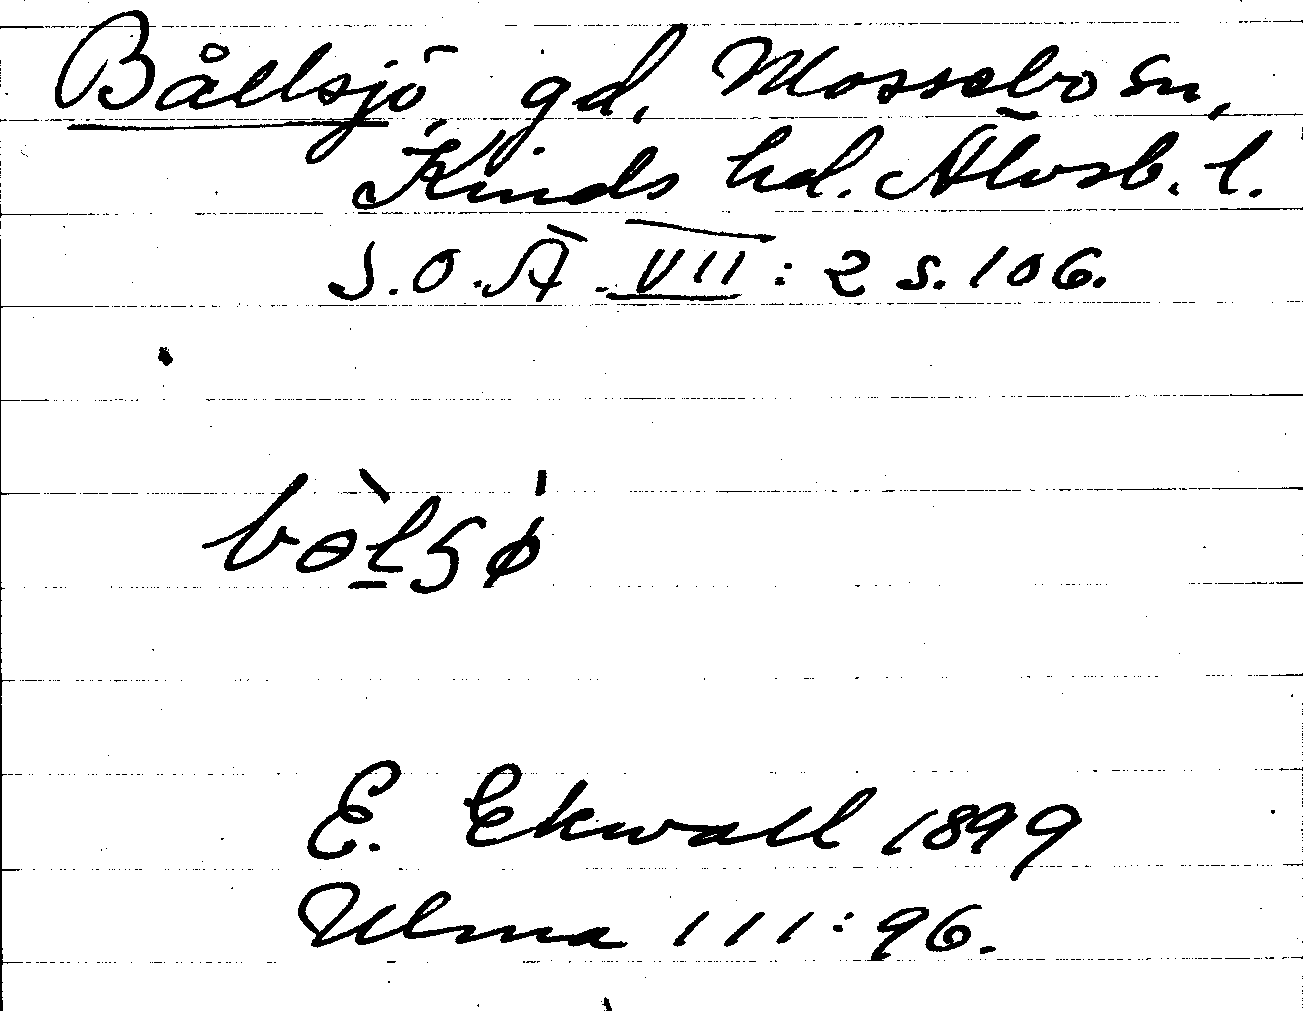 Bållsjö, gd, Mossebo sn,
Kinds hd. Älvsb. l.
S.O.Ä. VII: 2 s. 106.
bə̀lsø
E. Ekwall 1899
Ulma 111:96.